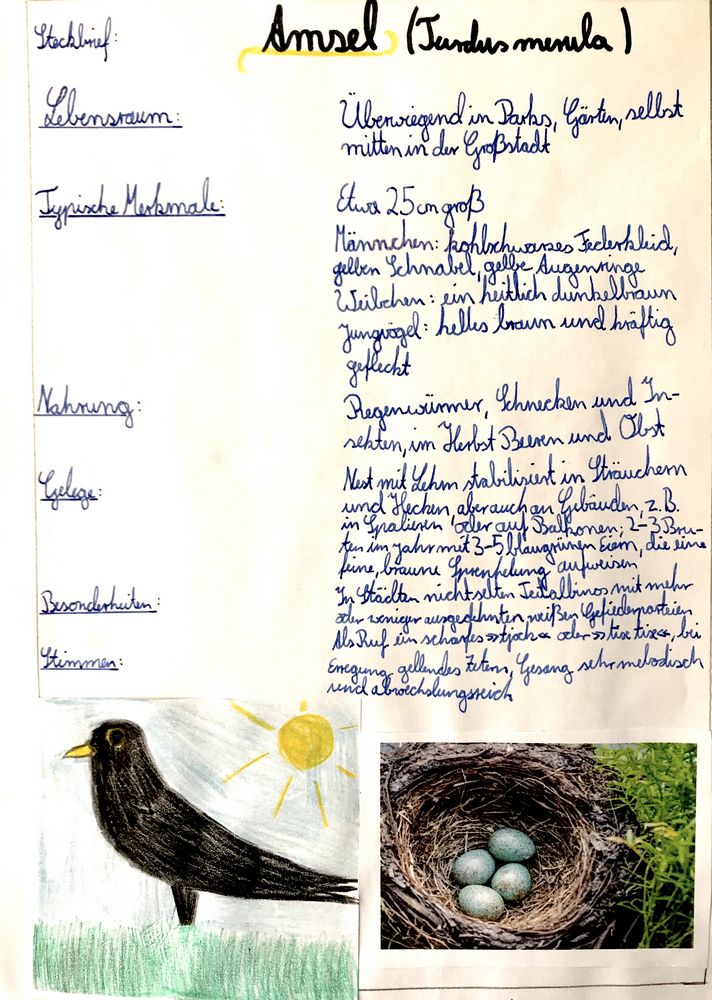 Steckbrief: Amsel (Turdus merula)
Lebensraum: Überwiegend in Parks, Gärten, selbst
mitten in der Großstadt
Typische Merkmale: Etwa 25cm groß
Männchen: kohlschwarzes Federkleid,
gelben Schnabel, gelbe Augenringe
Weibchen: ein heitlich dunkelbraun
Jungvögel: helles braun und kräftig
gefleckt
Nahrung: Regenwürmer, Schnecken und In-
sekten, im Herbst Beeren und Obst
Gelege: Nest mit Lehm stabilisiert in Sträuchern
und Hecken, aber auch an Gebäuden, z.B.
in Spalieren oder auf Balkonen; 2-3 Bru-
ten im Jahr mit 3-5 blaugrünen Eiern, die eine
feine, braune Sprenkelung aufweisen
Besonderheiten: In Städten nicht selten Teilalbinos mit mehr
oder weniger ausgedehnten weißen Gefiederpartien
Stimmen: Als Ruf ein scharfes »tjock« oder »tix tix«, bei
Erregung gellendes Zetern, Gesang sehr melodisch
und abwechslungsreich